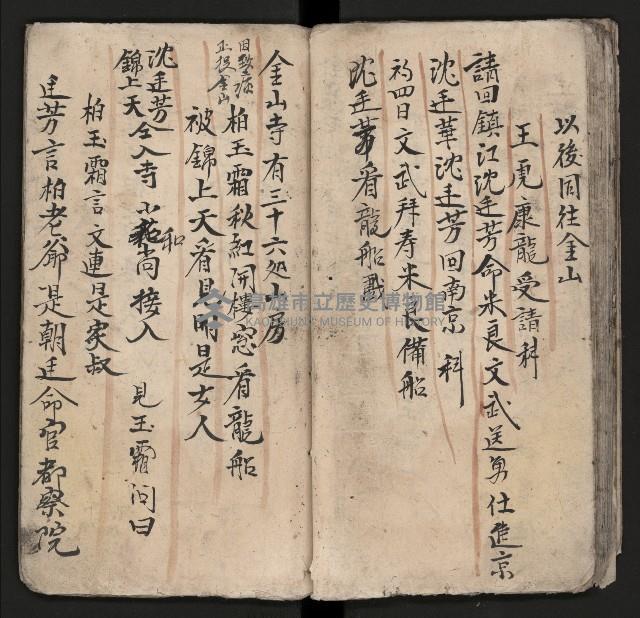 以後同往金山
王虎康龍受請科
請回鎮江沈廷芳命米良文武送勇仕進京
沈廷華沈廷芳回南京 科
初四日文武拜寿米良備船
沈廷芳看龍船戲
金山寺有三十六処小房
正投金山
柏玉霜秋紅開樓窓看龍船
被錦上天看見明是女人
沈廷芳
錦上天仝入寺 和尚接入 見玉霜问曰
柏玉霜言文連是家叔
廷芳言柏老爺是朝廷命官都察院
高雄市立歷史博物館
KAOHSIUNG MUSEUM OF HISTORY